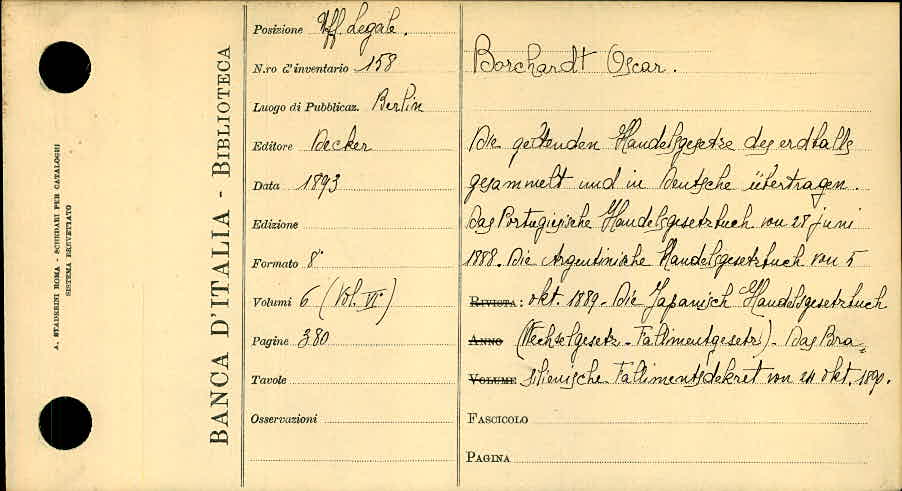 A. STADERINI ROMA - SCHEDARI PER CATALOGHI
SISTEMA BREVETTATO
BANCA D'ITALIA - BIBLIOTECA
Posizione Uff. Legale.
N.ro d'inventario 158
Luogo di Pubblicaz. Berlin
Editore Decker
Data 1893
Edizione
Formato 8°
Volumi 6 (Vol. VI°)
Pagine 380
Tavole
Osservazioni
Borchardt Oscar.
Die geltenden Handelsgesetze des erdballs
gesammelt und in Deutsche übertragen.
Das Portugiesische Handelsgesetzbuch von 28 juni
1888. Die Argentinische Handelsgesetzbuch von 5
RIVISTA: okt. 1889 - Die Japanisch Handelsgesetzbuch
ANNO (Wechselgesetz - Fallimentgesetz) - Das Bra=
VOLUME silienische Fallimentsdekret von 24 okt. 1890.
FASCICOLO
PAGINA